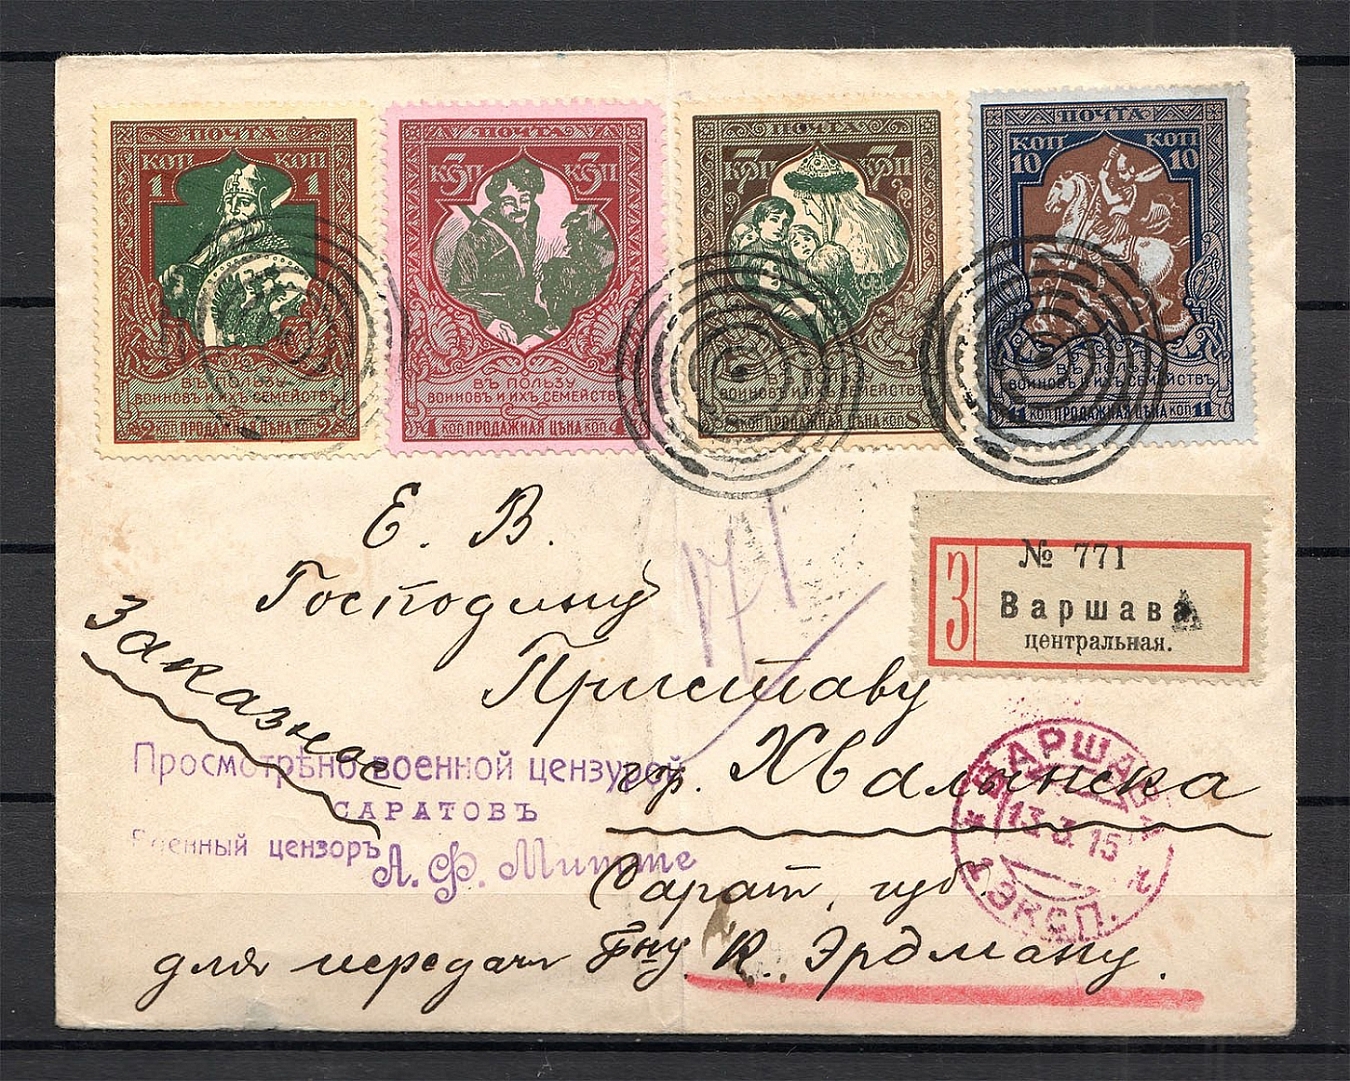 ПОЧТА
КОП КОП
1 1
ВЪ ПОЛЬЗУ
ВОИНОВЪ И ИХЪ СЕМЕЙСТВЪ
2 КОП ПРОДАЖНАЯ ЦѢНА КОП 2
ПОЧТА
3 КОП 3 КОП
ВЪ ПОЛЬЗУ
ВОИНОВЪ И ИХЪ СЕМЕЙСТВЪ
4 КОП ПРОДАЖНАЯ ЦѢНА КОП 4
ПОЧТА
7 КОП 7 КОП
ВЪ ПОЛЬЗУ
ВОИНОВЪ И ИХЪ СЕМЕЙСТВЪ
8 КОП ПРОДАЖНАЯ ЦѢНА КОП 8
ПОЧТА
КОП КОП
10 10
ВЪ ПОЛЬЗУ
ВОИНОВЪ И ИХЪ СЕМЕЙСТВЪ
11 КОП ПРОДАЖНАЯ ЦѢНА КОП 11
Е. В.
Господину
Приставу
гр. Хвалынска
Сарат. губ.
для передачи Гну К. Эрдману.
Заказное
З
№ 771
Варшава
центральная.
Просмотрѣно военной цензурой
САРАТОВЪ
Военный цензоръ А. Ф. Митте
ВАРШАВА
13.3.15
ЭКСП.